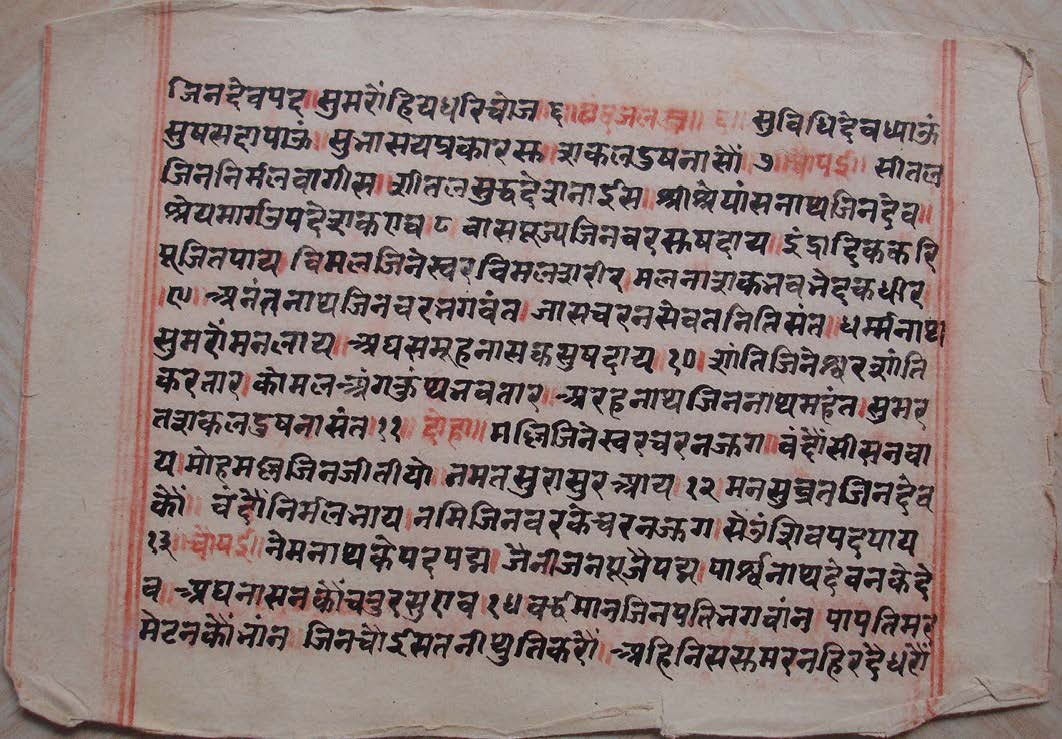 जिनदेवपद॥सुमरौंहियधरिचोज ६॥ ॥ ६॥ सुविधिदेवध्याऊं
सुषसदापाऊं॥ सुभासयप्रकारस्क॥शकलदुषनासौं ७॥चौपई॥ सीतल
जिननिर्मलवागीस॥शीतलसुद्धदेशनाईस॥श्रीश्रेयांसनाथजिनदेव॥
श्रेयमार्गउपदेशकराव ८ वासपूज्यजिनवरसुषदाय॥इंद्रादिककरि
पूजितपाय॥विमलजिनेस्वरविमलशरीर॥मलनाशकभवभेदकधीर
।९।अनंतनाथजिनचरनभगवंत॥जासचरनसेवतनितिसंत॥धर्म्मनाथ
सुमरौंमनलाय॥अघसमूहनासकसुषदाय॥१०॥शांतिजिनेश्वरशांति
करतार॥कोमलअंगकुंथअवतार॥अरहनाथजिननाथमहंत॥सुमर
तशकलदुषनासंत॥११॥दोहा॥मल्लिजिनेस्वरचरनजुग॥वंदौंसीसनवा
य॥मोहमल्लजिनजीतीयो॥नमतसुरासुरआय॥१२॥मनसुव्रतजिनदेव
कौं॥ वंदौंनिर्मलभाय॥नमिजिनवरकेचरनजुग॥सेऊंशिवपदपाय
१३॥चौपई॥नेमनाथकेपदपद्म॥जैनीजनपूजैपद्म॥पार्श्वनाथदेवनकेदे
व॥अघनासनकौंचतुरसुभाव॥१४॥वर्द्धमानजिनपतिभगवांन॥पापतिमर
मेटनकौंभांन॥जिनचौईसतनीथुतिकरौं॥अहिनिससुमरनहिरदैधरौं